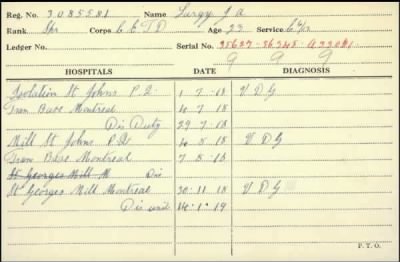 Reg. No. 3085581 Name Surgy J A
Rank Spr Corps C E T D Age 23 Service 6/12
Ledger No. Serial No. 35627-36345-A33041
9 9 9
HOSPITALS DATE DIAGNOSIS
Isolation St Johns P.Q. 1 7 18 V D G
Tran Base Montreal 4 7 18
Dis Duty 29 7 18
Mill St Johns P.Q. 4 8 18 V D G
Tran Base Montreal 7 8 18
St Georges Mill M Dis
St Georges Mill Montreal 30 11 18 V D G
Dis 14 1 19
P. T. O.